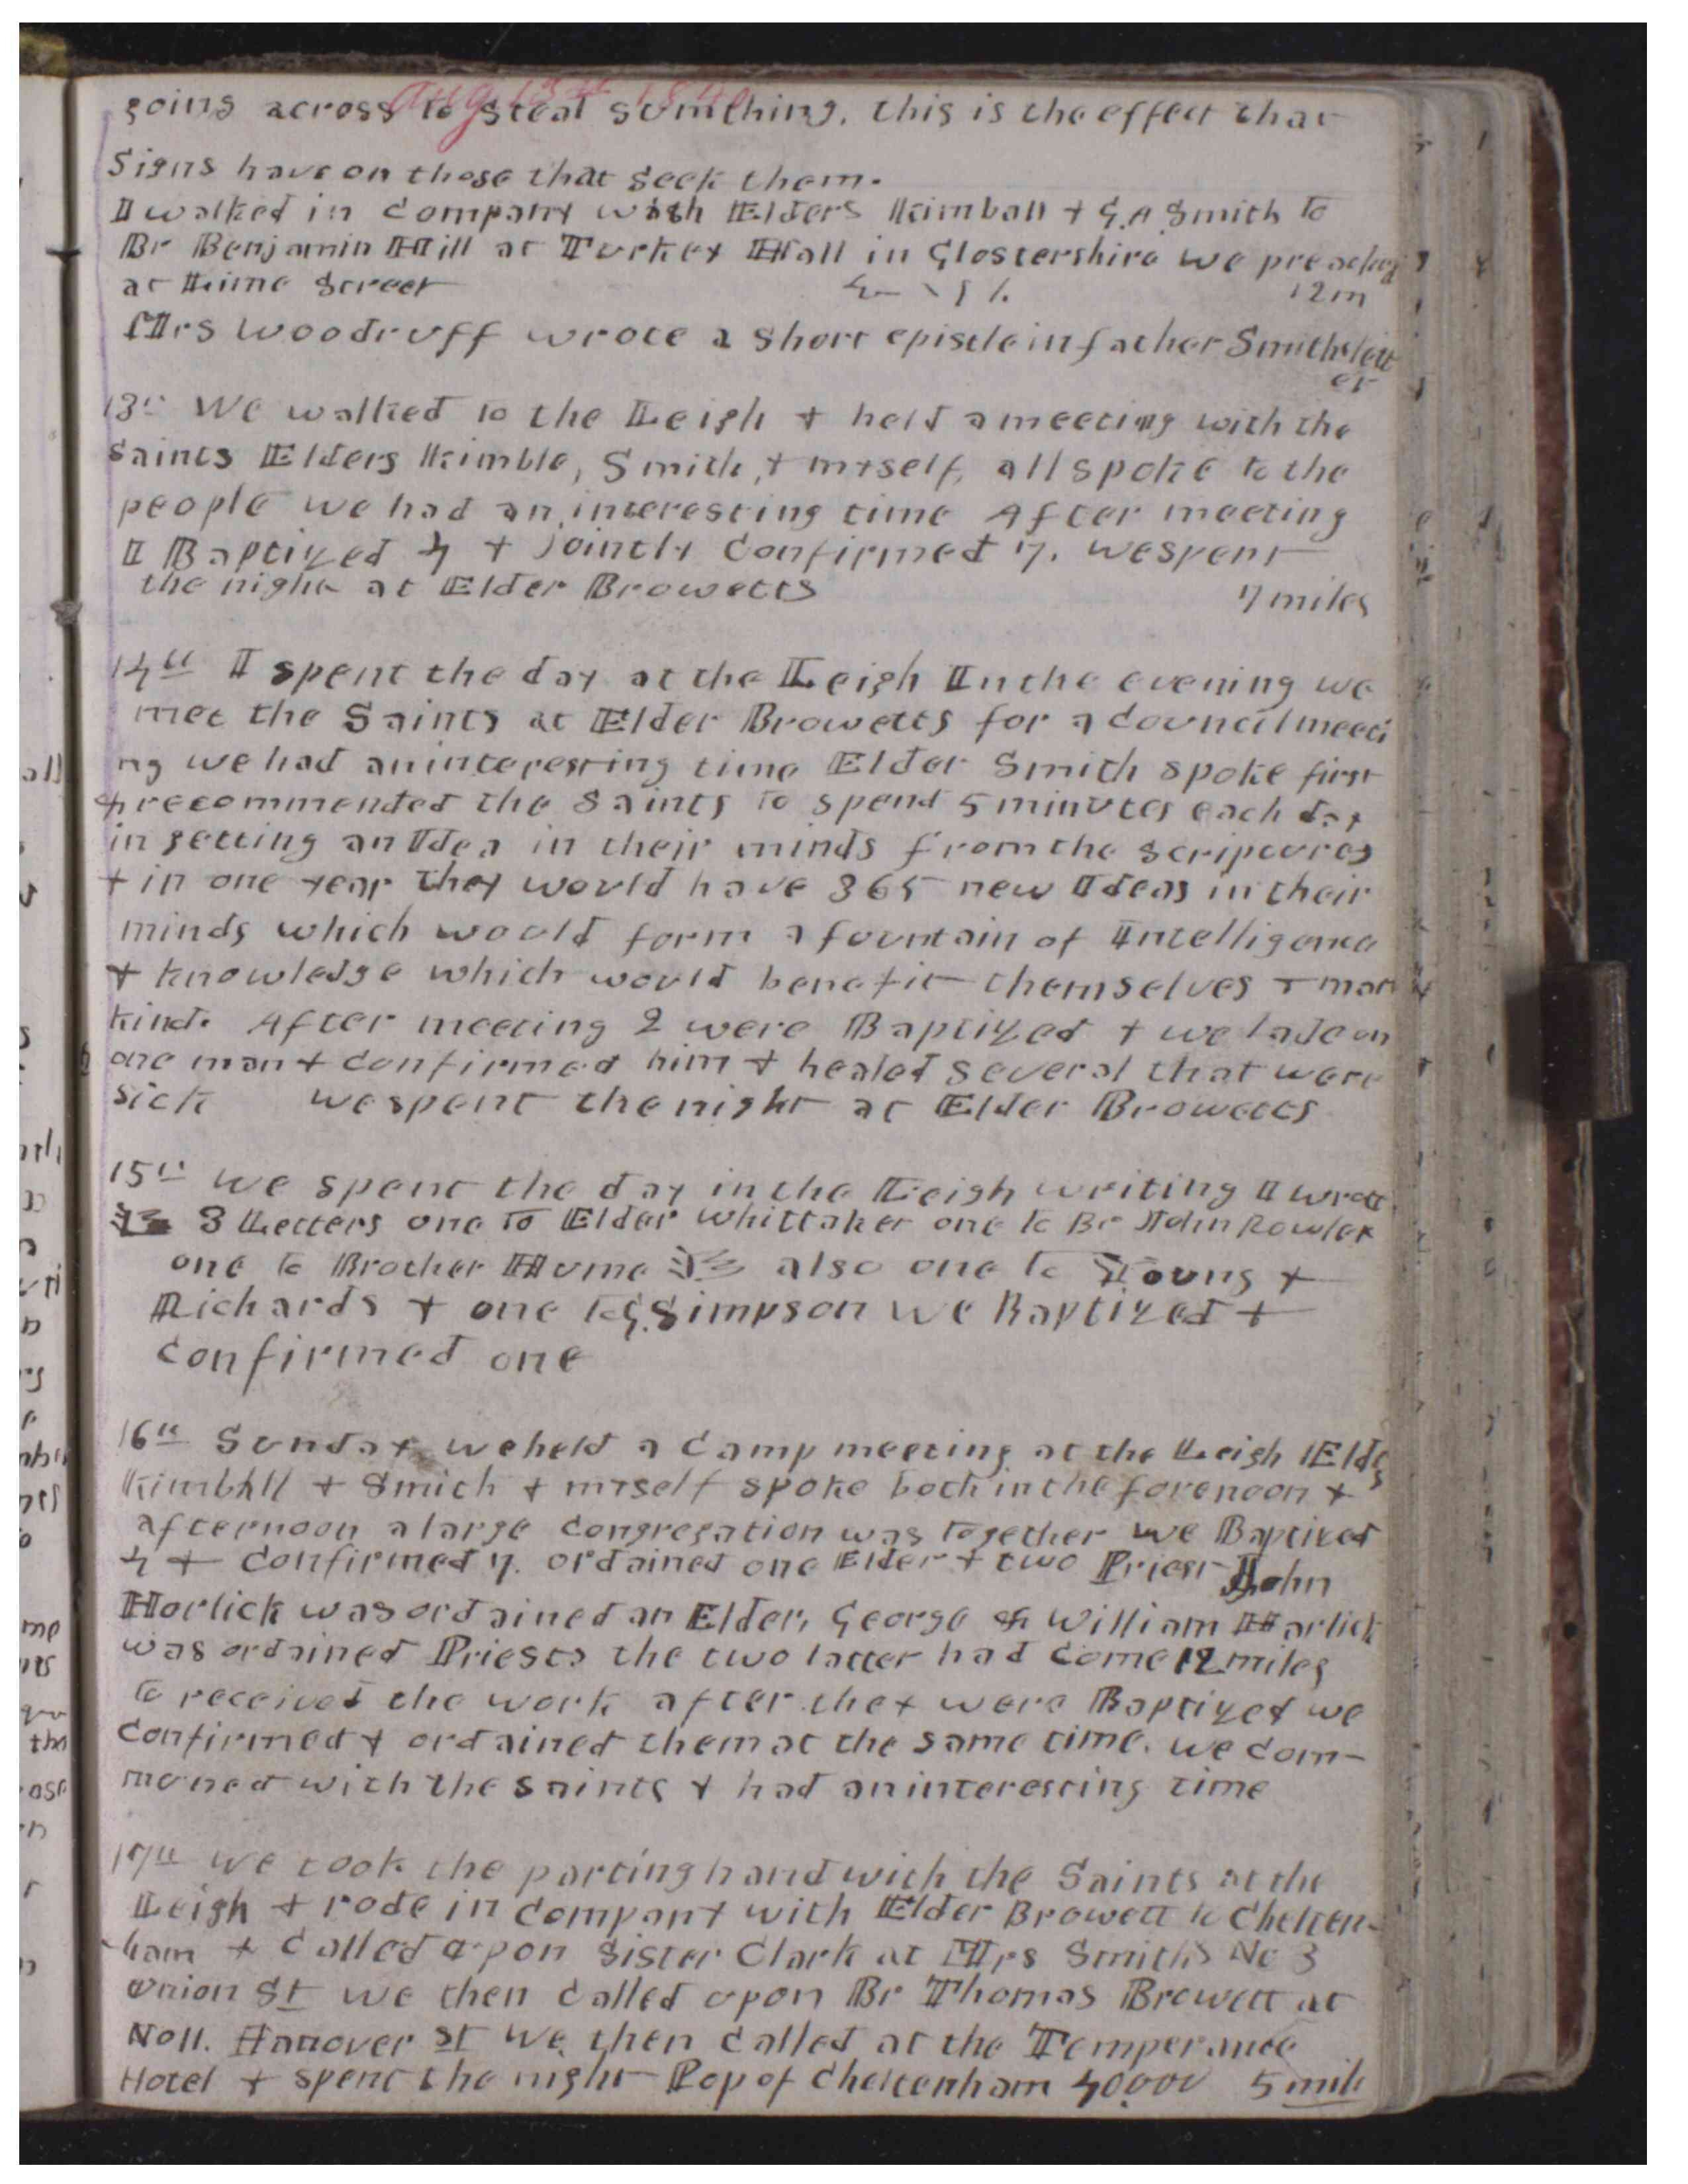 Aug 13th 1840
going across to steal sumthing. this is the effect that
Signs have on those that seek them.
I walked in Company with Elders Kimball & G.A. Smith to
Br Benjamin Hill at Turkey Hall in Glostershire we preached
at Lime Street 12m
Mrs Woodruff wrote a short epistle in father Smiths lett
er
13th We walked to the Leigh & held a meeting with the
Saints Elders Kimble, Smith, & myself, all spoke to the
people we had an interesting time After meeting
I Baptized 4 & jointly Confirmed 7. we spent
the night at Elder Browetts 7 miles
14th I spent the day at the Leigh In the evening we
met the Saints at Elder Browetts for a Council meeti
ng we had an interesting time Elder Smith spoke first
& recommended the Saints to spend 5 minutes each day
in getting an Idea in their minds from the scriptures
& in one year they would have 365 new Ideas in their
minds which would form a fountain of Intelligence
& knowledge which would benefit themselves & man
kind. After meeting 2 were Baptized & we lade on
one man & Confirmed him & healed several that were
sick we spent the night at Elder Browetts
15th we spent the day in the Leigh writing I wrote
3 Letters one to Elder Whittaker one to Br John Rowley
one to Brother Hume also one to Young &
Richards & one to G. Simpson we Baptized &
Confirmed one
16th Sunday we held a Camp meeting at the Leigh Elds
Kimball & Smith & myself spoke both in the forenoon &
afternoon a large Congregation was together we Baptized
4 & Confirmed 7. ordained one Elder & two Priest John
Horlick was ordained an Elder, George & William Harlick
was ordained Priests the two latter had Come 12 miles
to received the work after they were Baptized we
Confirmed & ordained them at the same time. we Com-
muned with the Saints & had an interesting time
17th we took the parting hand with the Saints at the
Leigh & rode in Company with Elder Browett to Chelten-
ham & Called upon Sister Clark at Mrs Smiths No 3
Union St we then Called upon Br Thomas Browett at
No 11. Hanover St we then Called at the Temperance
Hotel & spent the night Pop of Cheltenham 40,000 5 mile